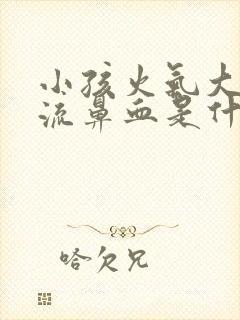 小孩火氣大
流鼻血是什
哈欠兄